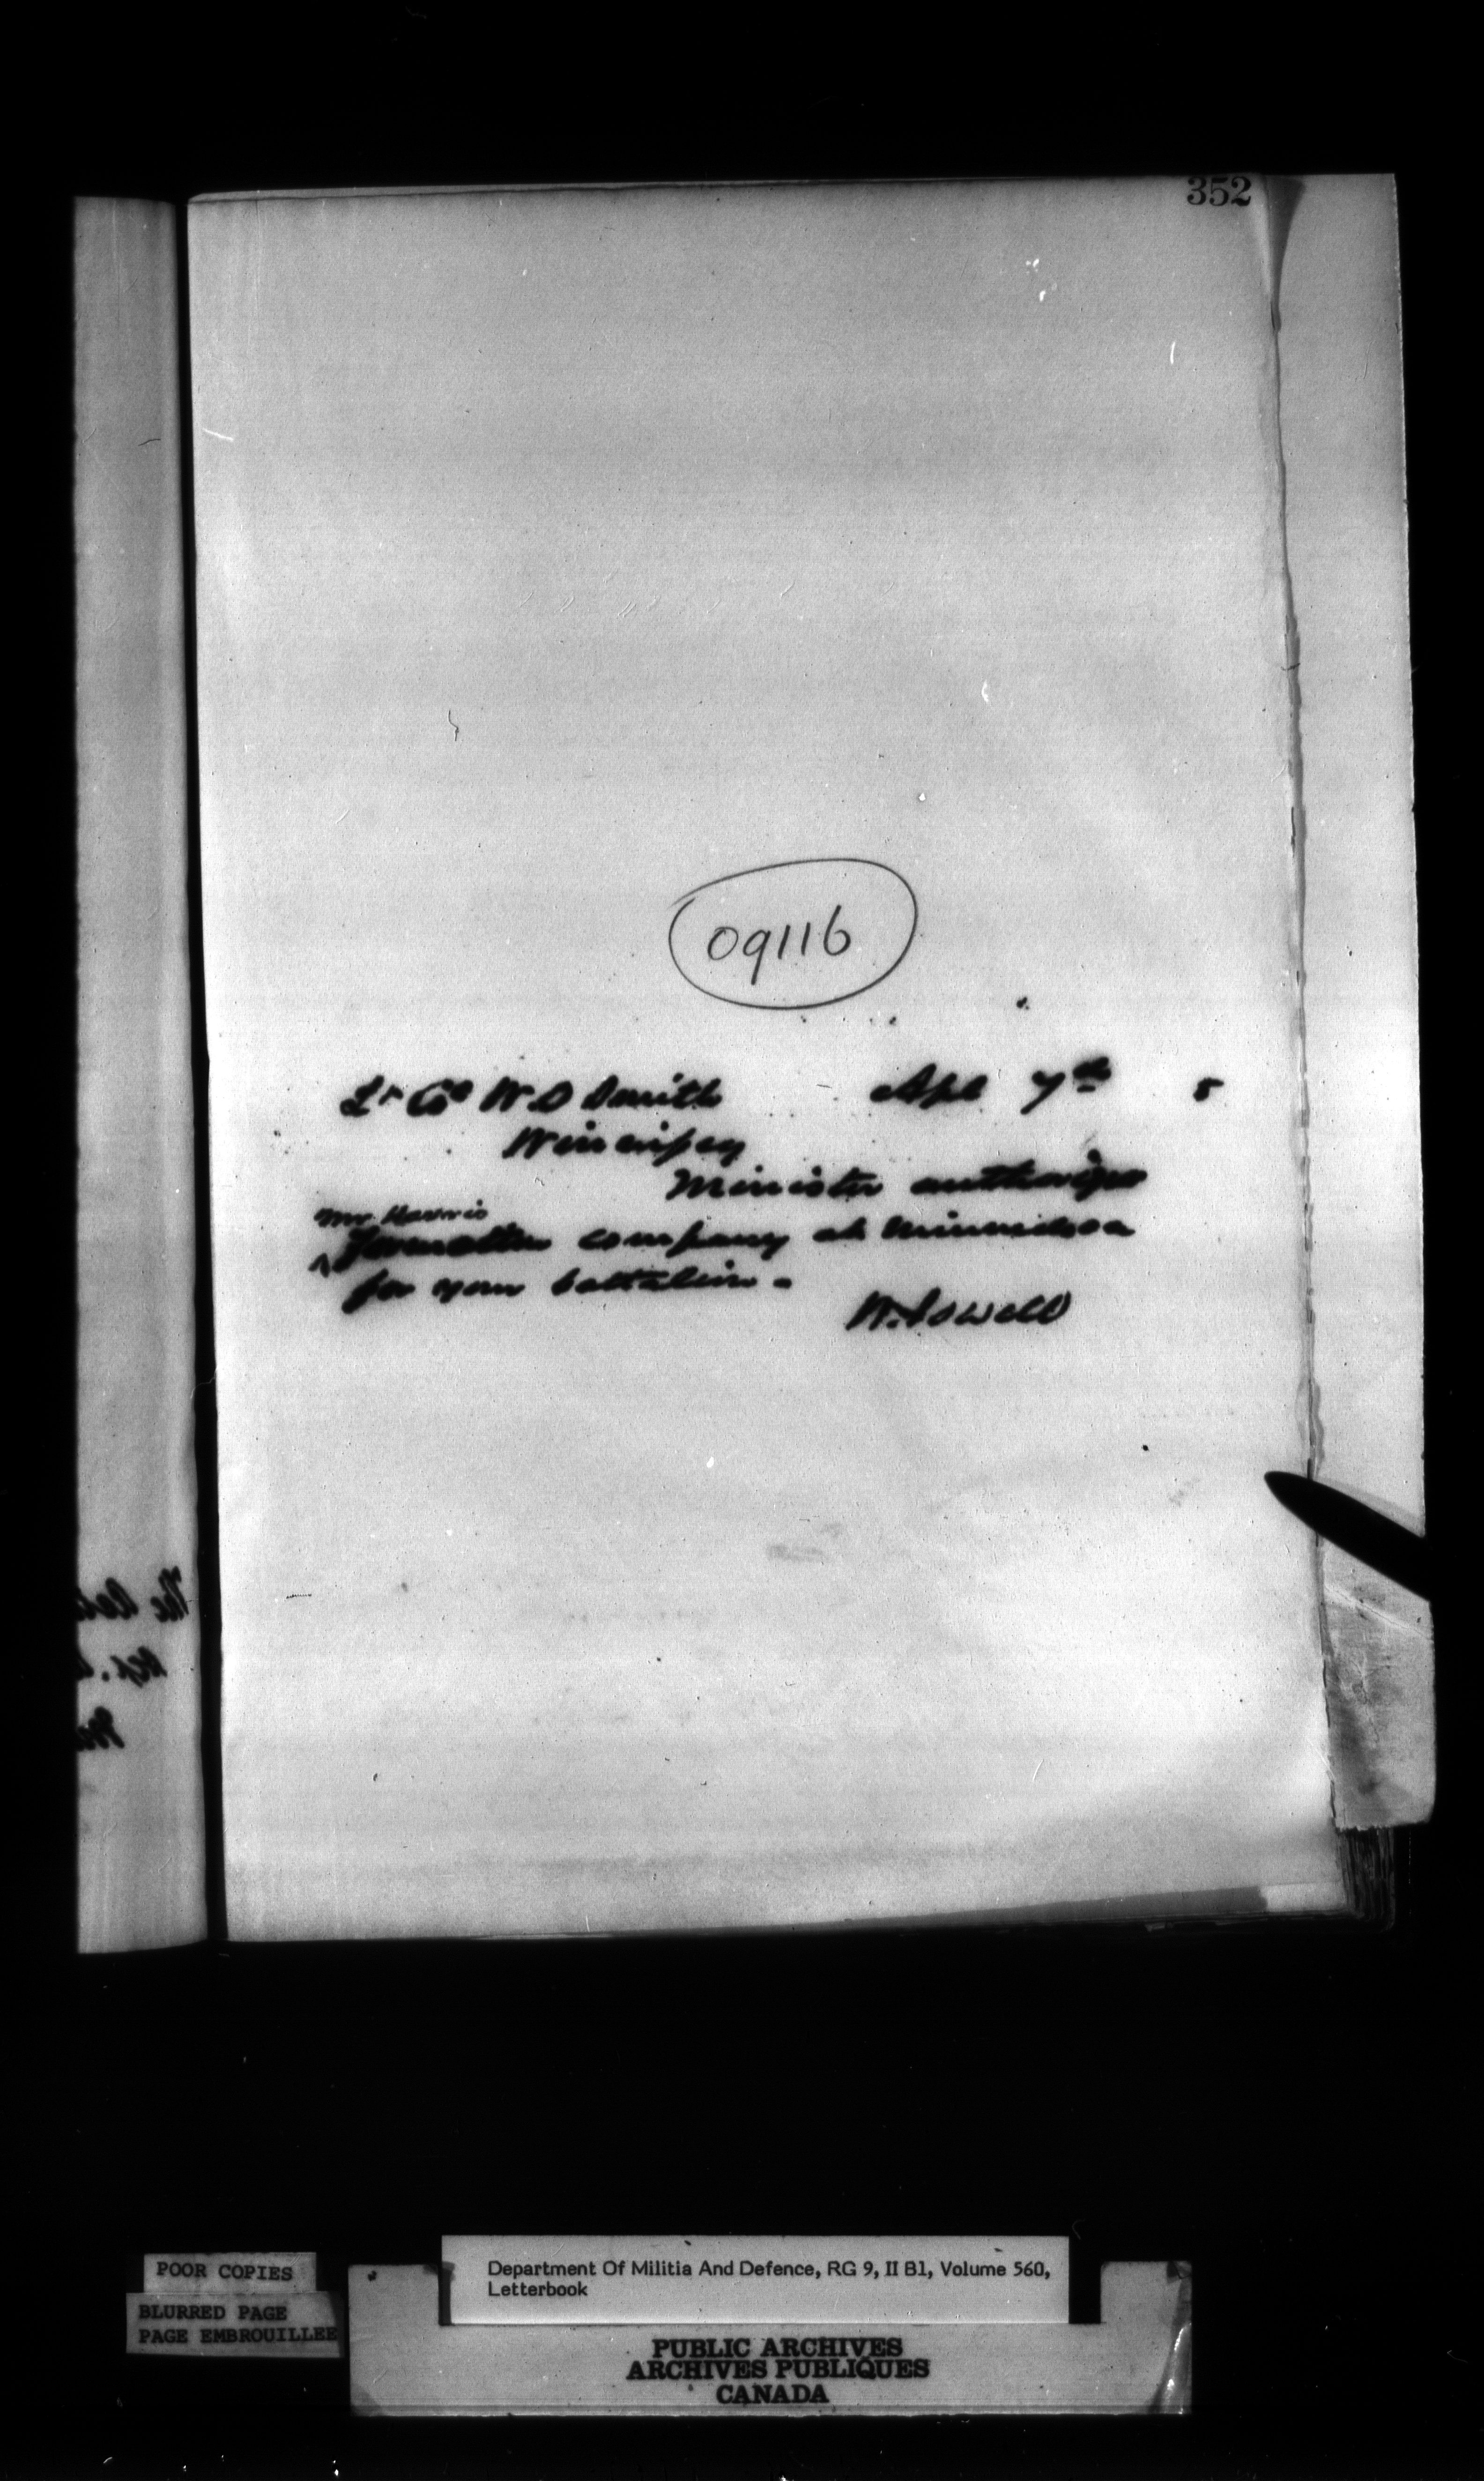 352
09116
Lt Col W. O Smith Apl 7th 5
Winnipeg
Minister authorizes
Mr. Harris
company at Minnedosa
for your battalion -
W. Powell
The
Dep.
POOR COPIES
BLURRED PAGE
PAGE EMBROUILLEE
Department Of Militia And Defence, RG 9, II B1, Volume 560,
Letterbook
PUBLIC ARCHIVES
ARCHIVES PUBLIQUES
CANADA